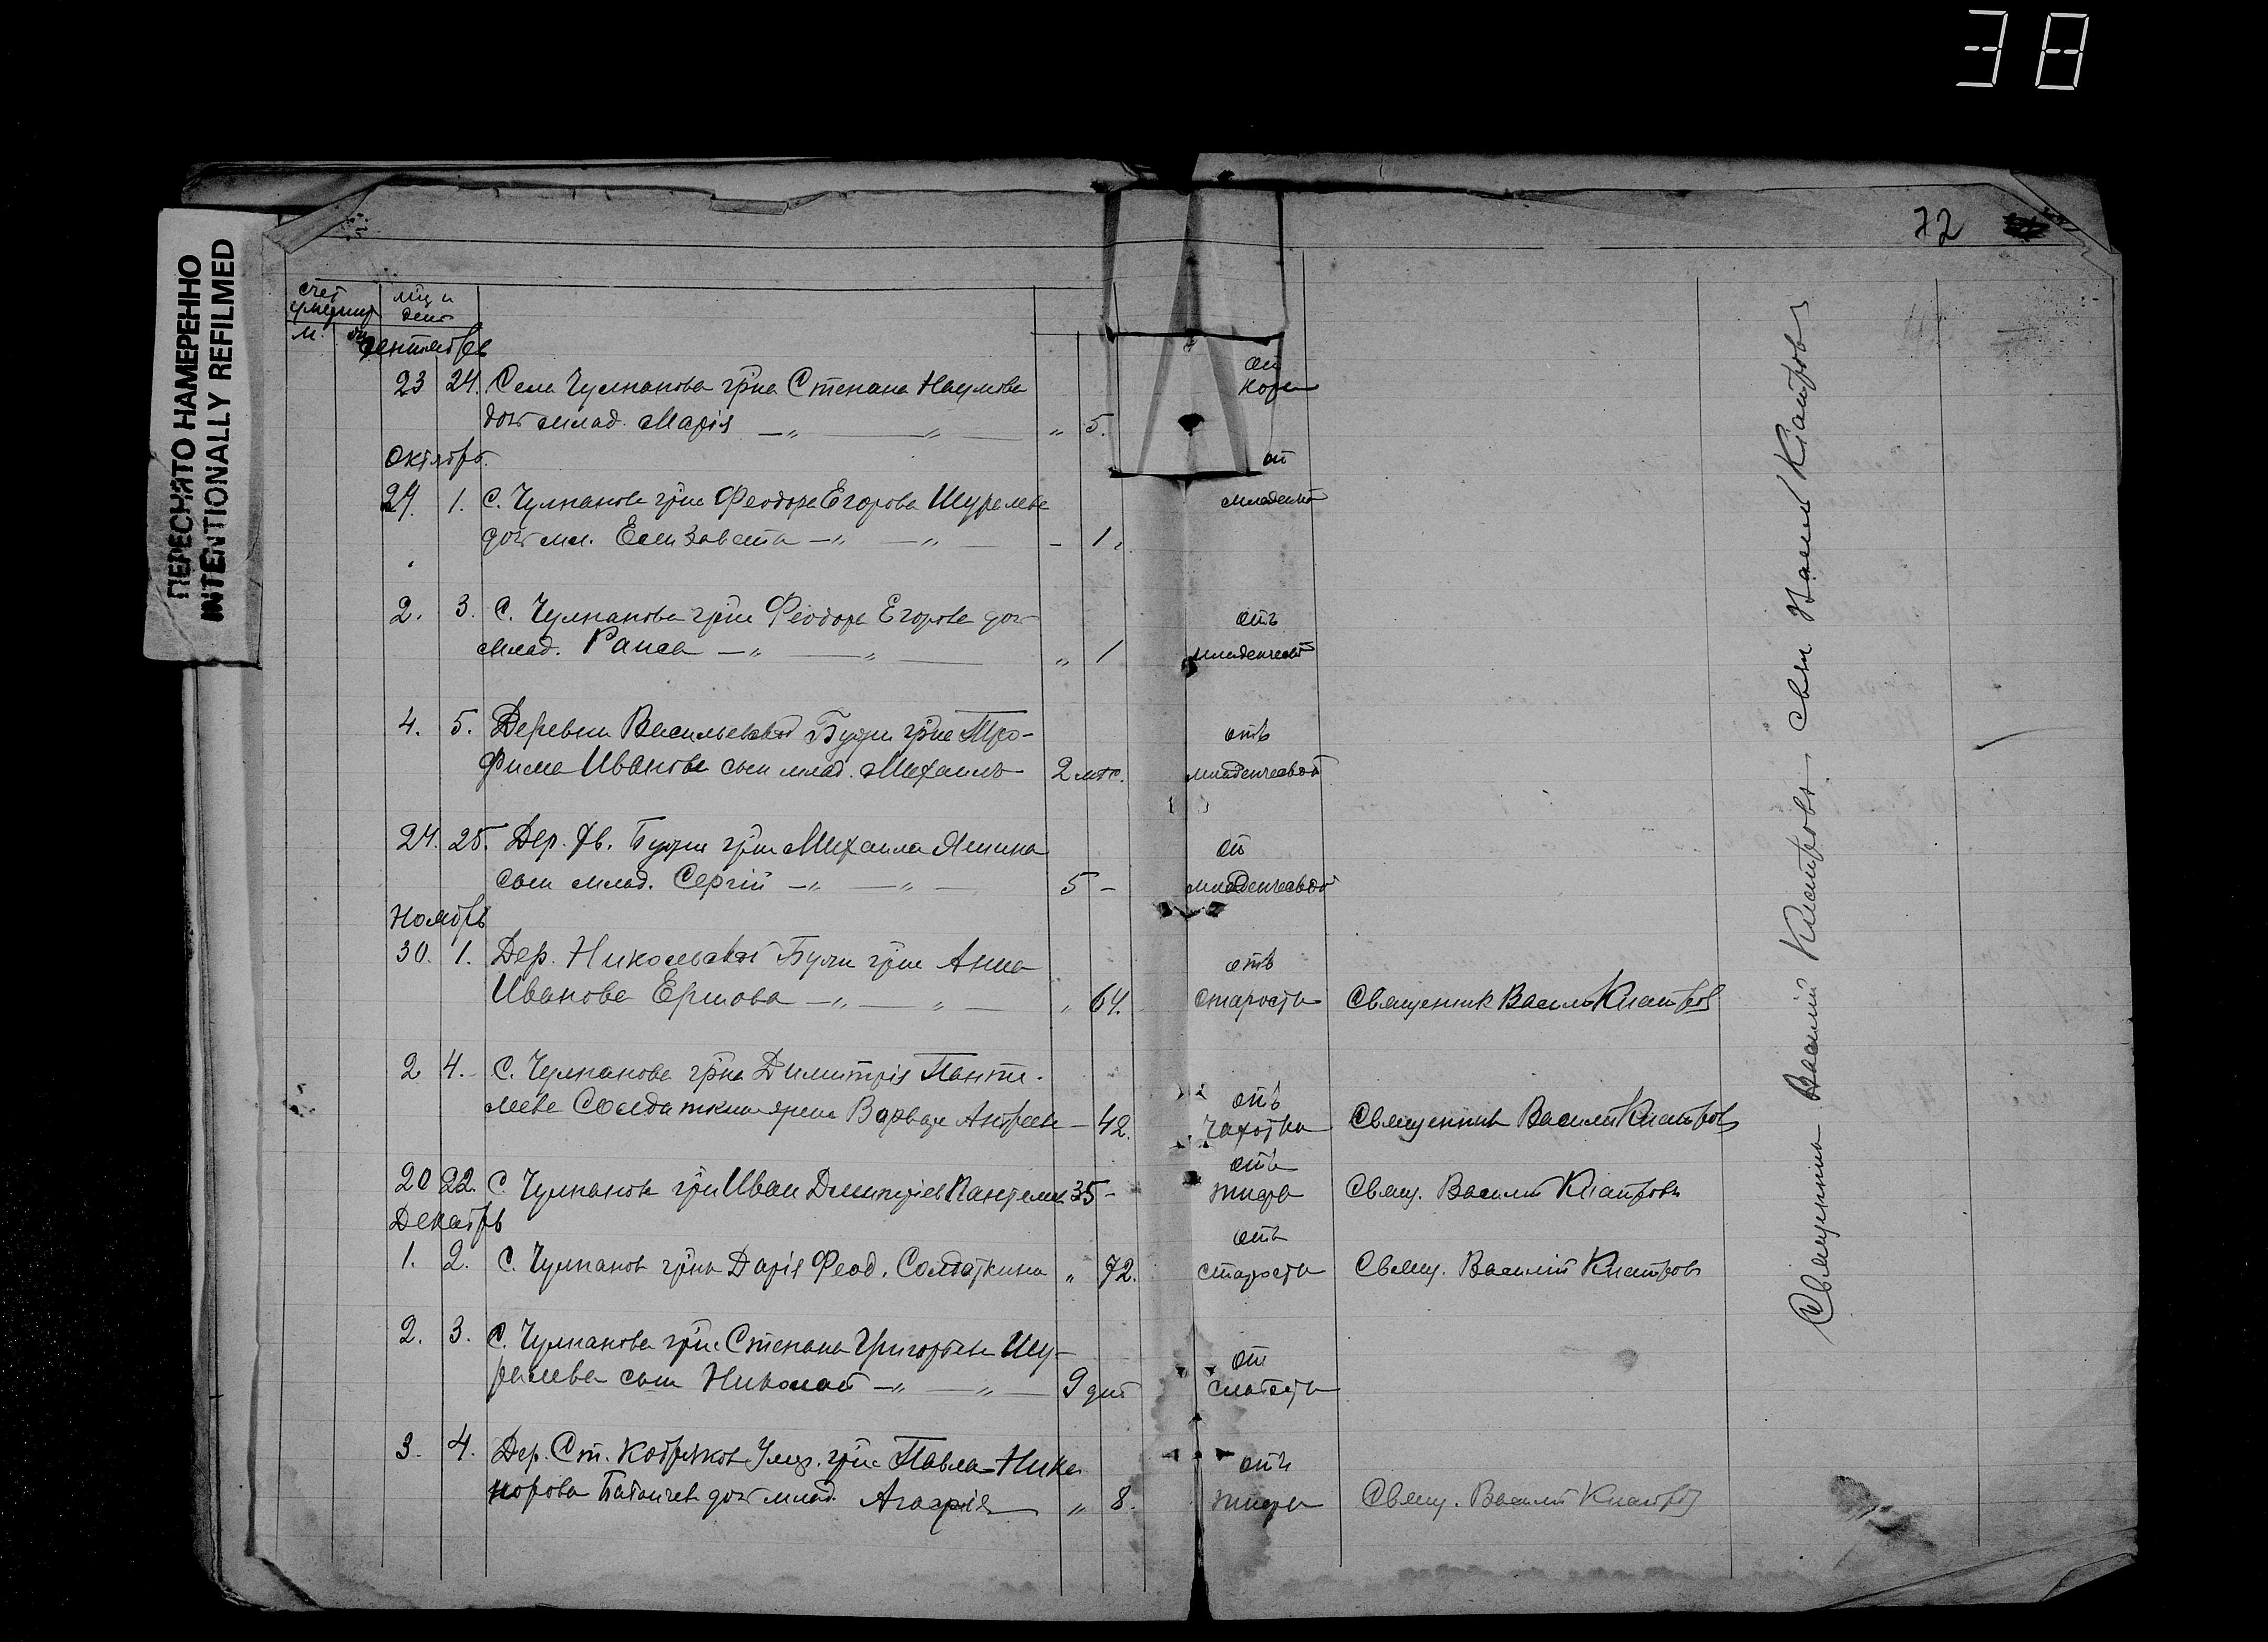 38
72
ПЕРЕСНЯТО НАМЕРЕННО
INTENTIONALLY REFILMED
счет
мц и
день
м.
Сентябрь
23 24. Села Чулпанова гр-на Степана Наумова
от
кори
доч млад. Марія — „ — „ — „ 5.
Октябрь.
от
1. С. Чулпанова гр-на Феодора Егорова Шурелева
младенч
доч мл. Елизавета — „ — „ — - 1
2. 3. С. Чулпанова гр-на Феодора Егорова доч
отъ
млад. Раиса — „ — „ — „ 1
младенческой
4. 5. Деревни Васильевской Бугри гр-на Тро-
отъ
фима Иванова сын млад. Михаилъ 2 мес.
младенческой
24. 25. Дер. Бугри гр-на Михаила Яшина
от
сын млад. Сергій — „ — „ — 5 -
младенческой
Ноябрь
30. 1. Дер. Никольской Бугри гр-на Анна
отъ
Иванова Ершова — „ — „ — „ 64.
старости Священник Василій Кпатров
2 4. С. Чулпанова гр-на Димитрія Панте-
леева Солдаткина Варвара Андреева — 42.
отъ
чахотки Священник Василій Кпатров
20 22. С. Чулпанова гр-н Иван Димитріев Пантелеев 35 -
отъ
тифа Свящ. Василій Кпатровъ
Декабрь
отъ
1. 2. С. Чулпанов гр-на Дарія Феод. Солдаткина „ 72.
старости Свящ. Василій Кпатровъ
2. 3. С. Чулпанова гр-на Степана Григорьева Шу-
от
релева сын Николай — „ — „ — 9 дней
слабости
3. 4. Дер. Ст. гр-на Павла Ника
отъ
норова доч млад. „ 8.
тифа Свящ. Василій Кпатров
Священникъ Василій Кпатровъ свящ. Василій Кпатровъ